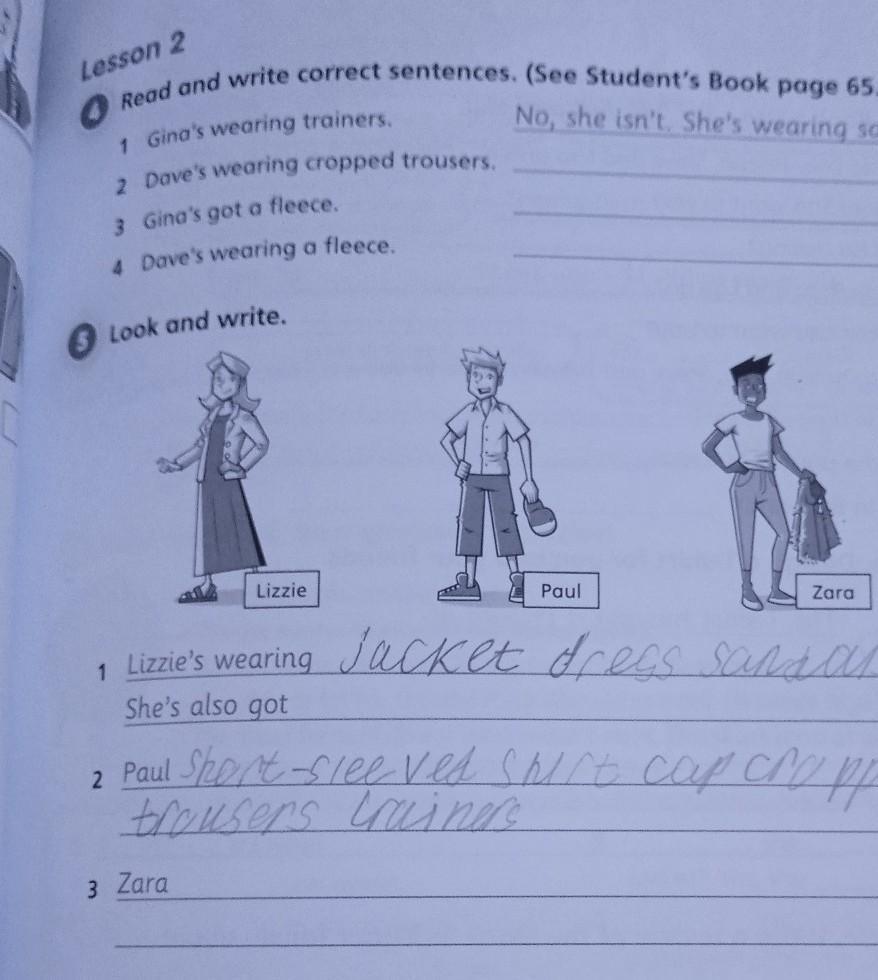 Lesson 2
4 Read and write correct sentences. (See Student's Book page 65.
1 Gina's wearing trainers. No, she isn't. She's wearing
2 Dave's wearing cropped trousers.
3 Gina's got a fleece.
4 Dave's wearing a fleece.
5 Look and write.
Lizzie Paul Zara
1 Lizzie's wearing jacket dress
She's also got
2 Paul Short-sleeved Shirt cap
trousers trainers
3 Zara